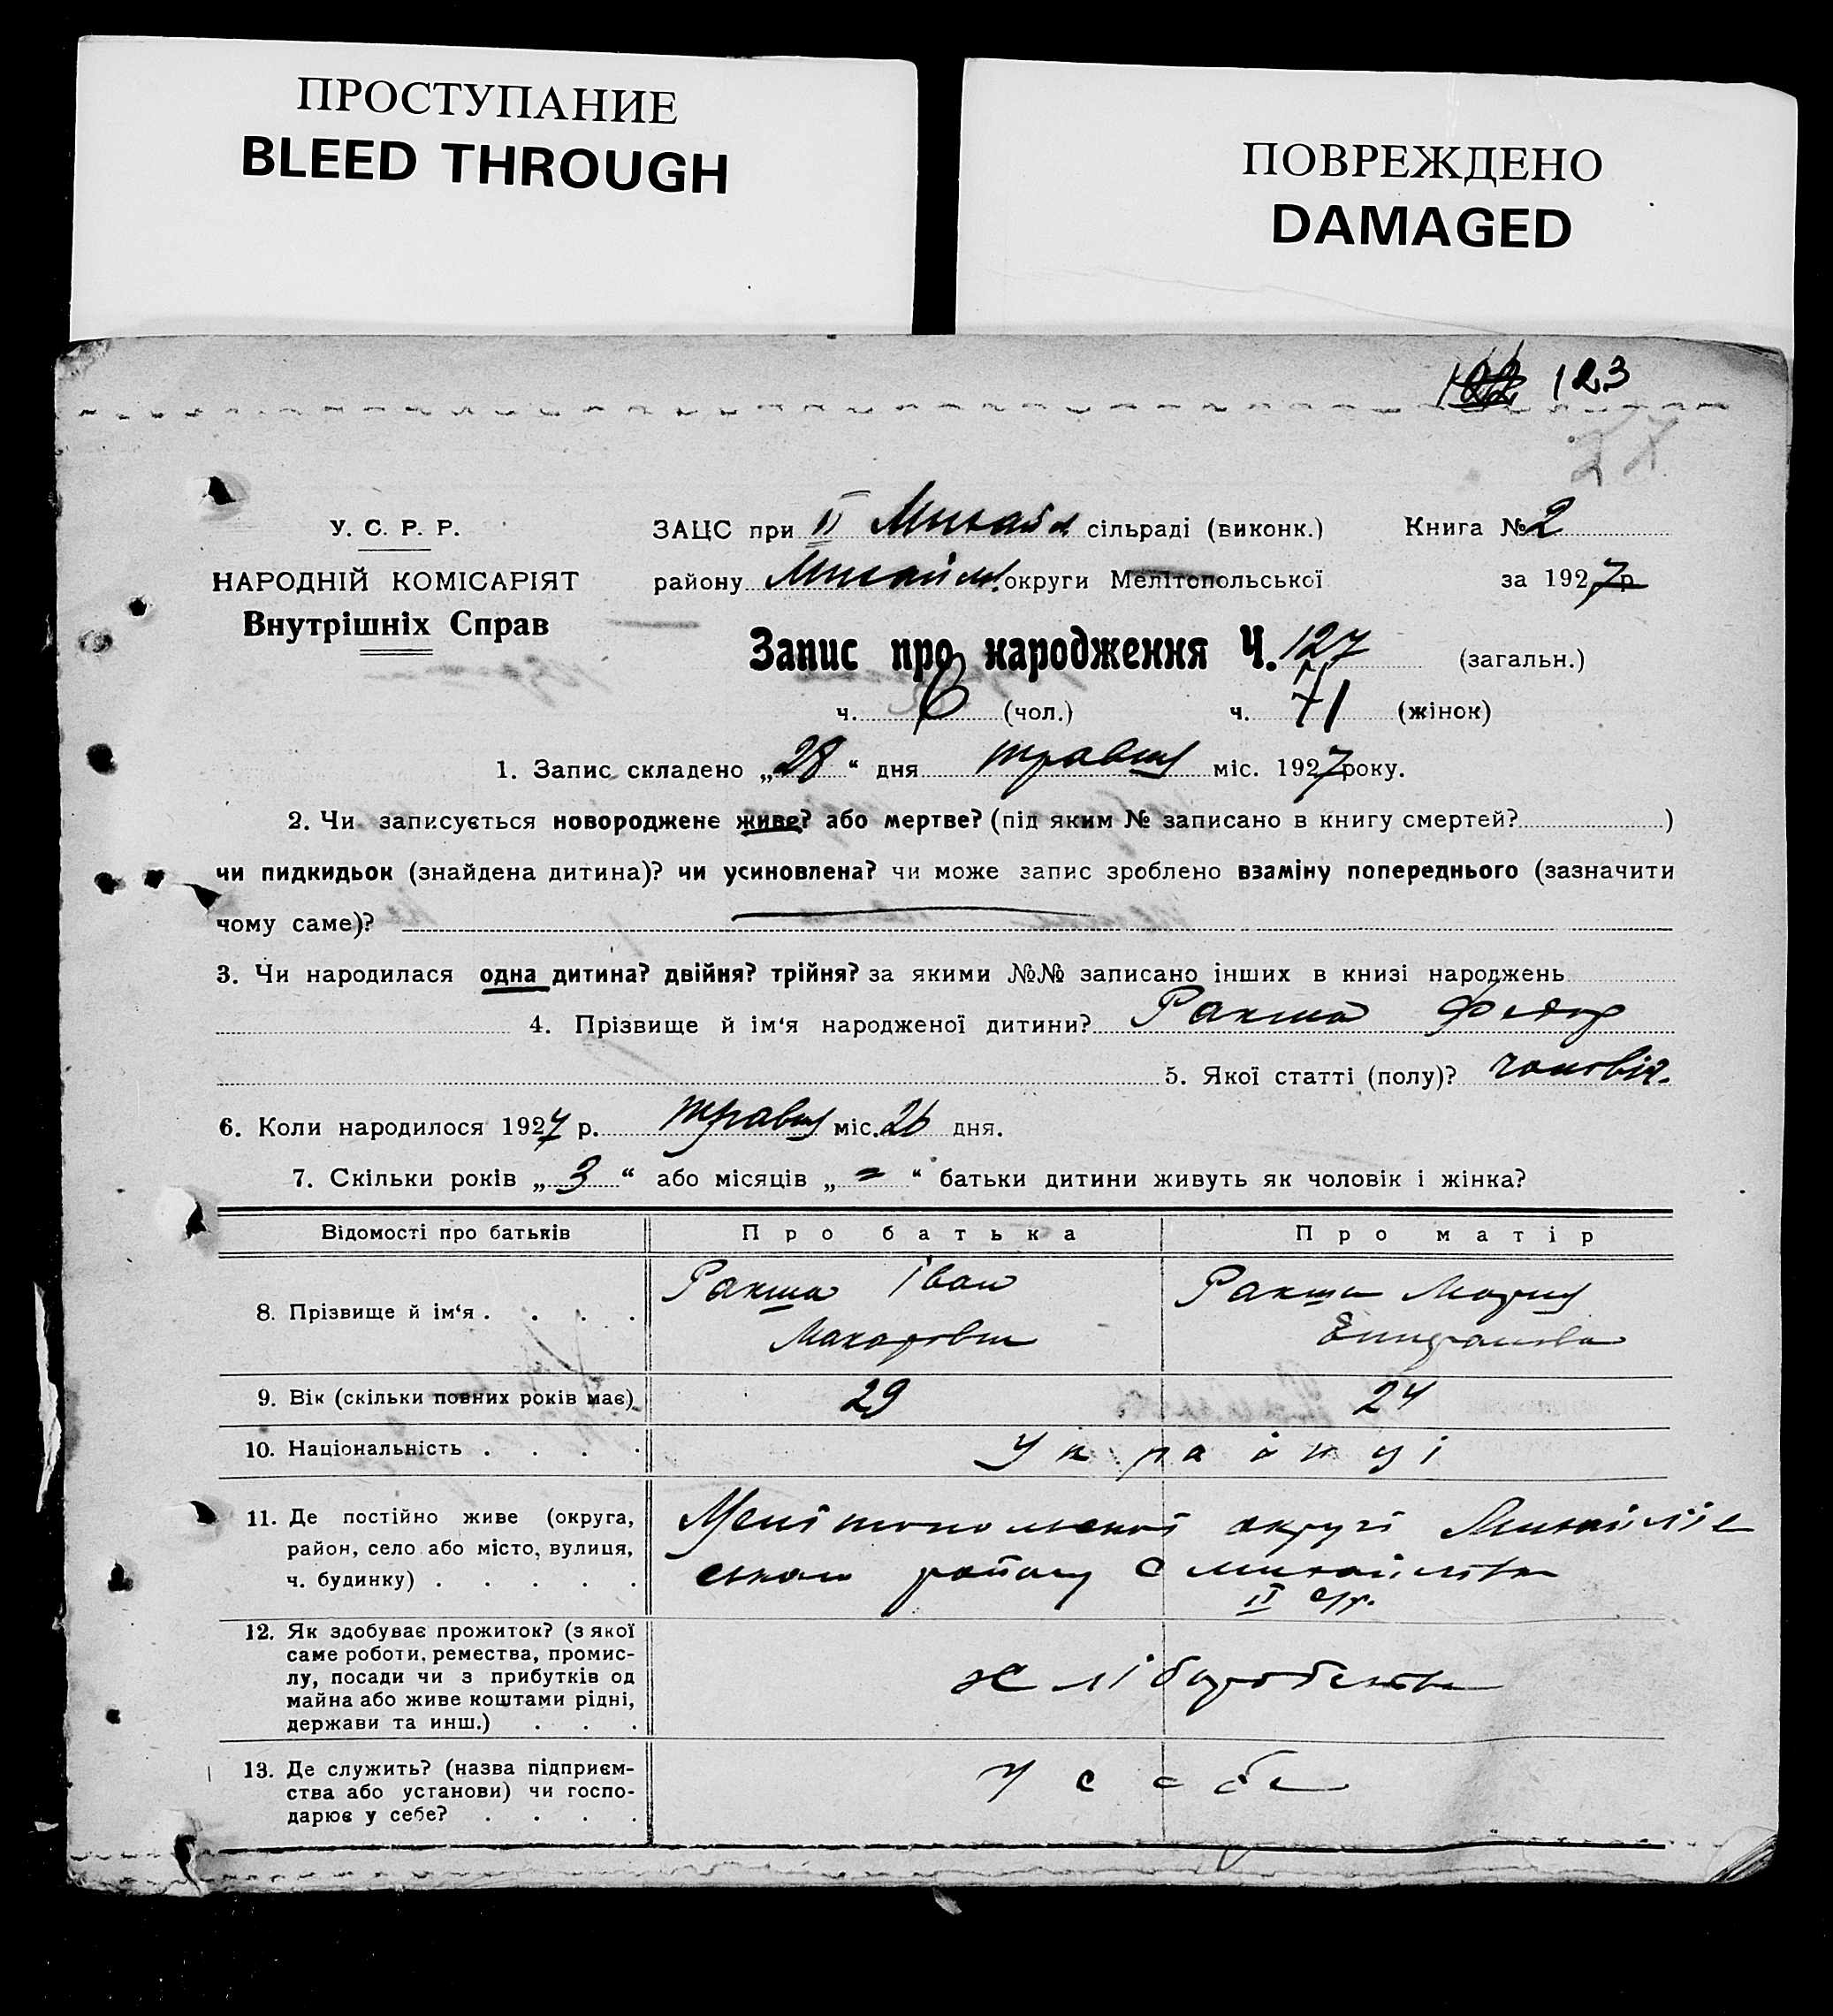 ПРОСТУПАНИЕ
BLEED THROUGH
ПОВРЕЖДЕНО
DAMAGED
123
У. С. Р. Р.
НАРОДНІЙ КОМІСАРІЯТ
Внутрішніх Справ
ЗАЦС при II Михайл. сільраді (виконк.) Книга № 2
району Михайл. округи Мелітопольської за 1927 р
Запис про народження Ч. 127 (загальн.)
ч. (чол.) ч. 71 (жінок)
1. Запис складено „28“ дня травня міс. 1927 року.
2. Чи записується новороджене живе? або мертве? (під яким № записано в книгу смертей? )
чи пидкидьок (знайдена дитина)? чи усиновлена? чи може запис зроблено взаміну попереднього (зазначити
чому саме)?
3. Чи народилася одна дитина? двійня? трійня? за якими №№ записано інших в книзі народжень
4. Прізвище й ім‘я народженої дитини? Ракша Федор
5. Якої статті (полу)? чоловіч.
6. Коли народилося 1927 р. травня міс. 26 дня.
7. Скільки років „3“ або місяців „=“ батьки дитини живуть як чоловік і жінка?
Відомості про батьків Про батька Про матір
8. Прізвище й ім‘я . . . . Ракша Іван Ракша Мария
Макарович
9. Вік (скільки повних років має) 29 24
10. Національність . . . . Українці
11. Де постійно живе (округа,
район, село або місто, вулиця,
ч. будинку) . . . . .
Мелітопольскої округі Михайлів
ського району с Михайлівка
II с/р.
12. Як здобуває прожиток? (з якої
саме роботи, ремества, промис-
лу, посади чи з прибутків од
майна або живе коштами рідні,
держави та инш.) . . .
хліборобство
13. Де служить? (назва підприєм-
ства або установи) чи госпо-
дарює у себе? . . . .
У себе